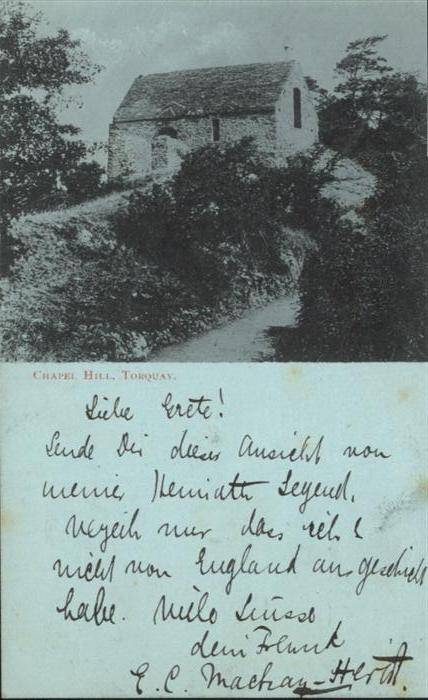 CHAPEL HILL, TORQUAY.
Liebe Grete!
Sende Dir dieser Ansicht von
meiner Heimath Gegend.
Verzeih mir dass ich
nicht von England aus geschickt
habe. Viele Grüsse
dein Freund
E. C. Mackay-Herst.